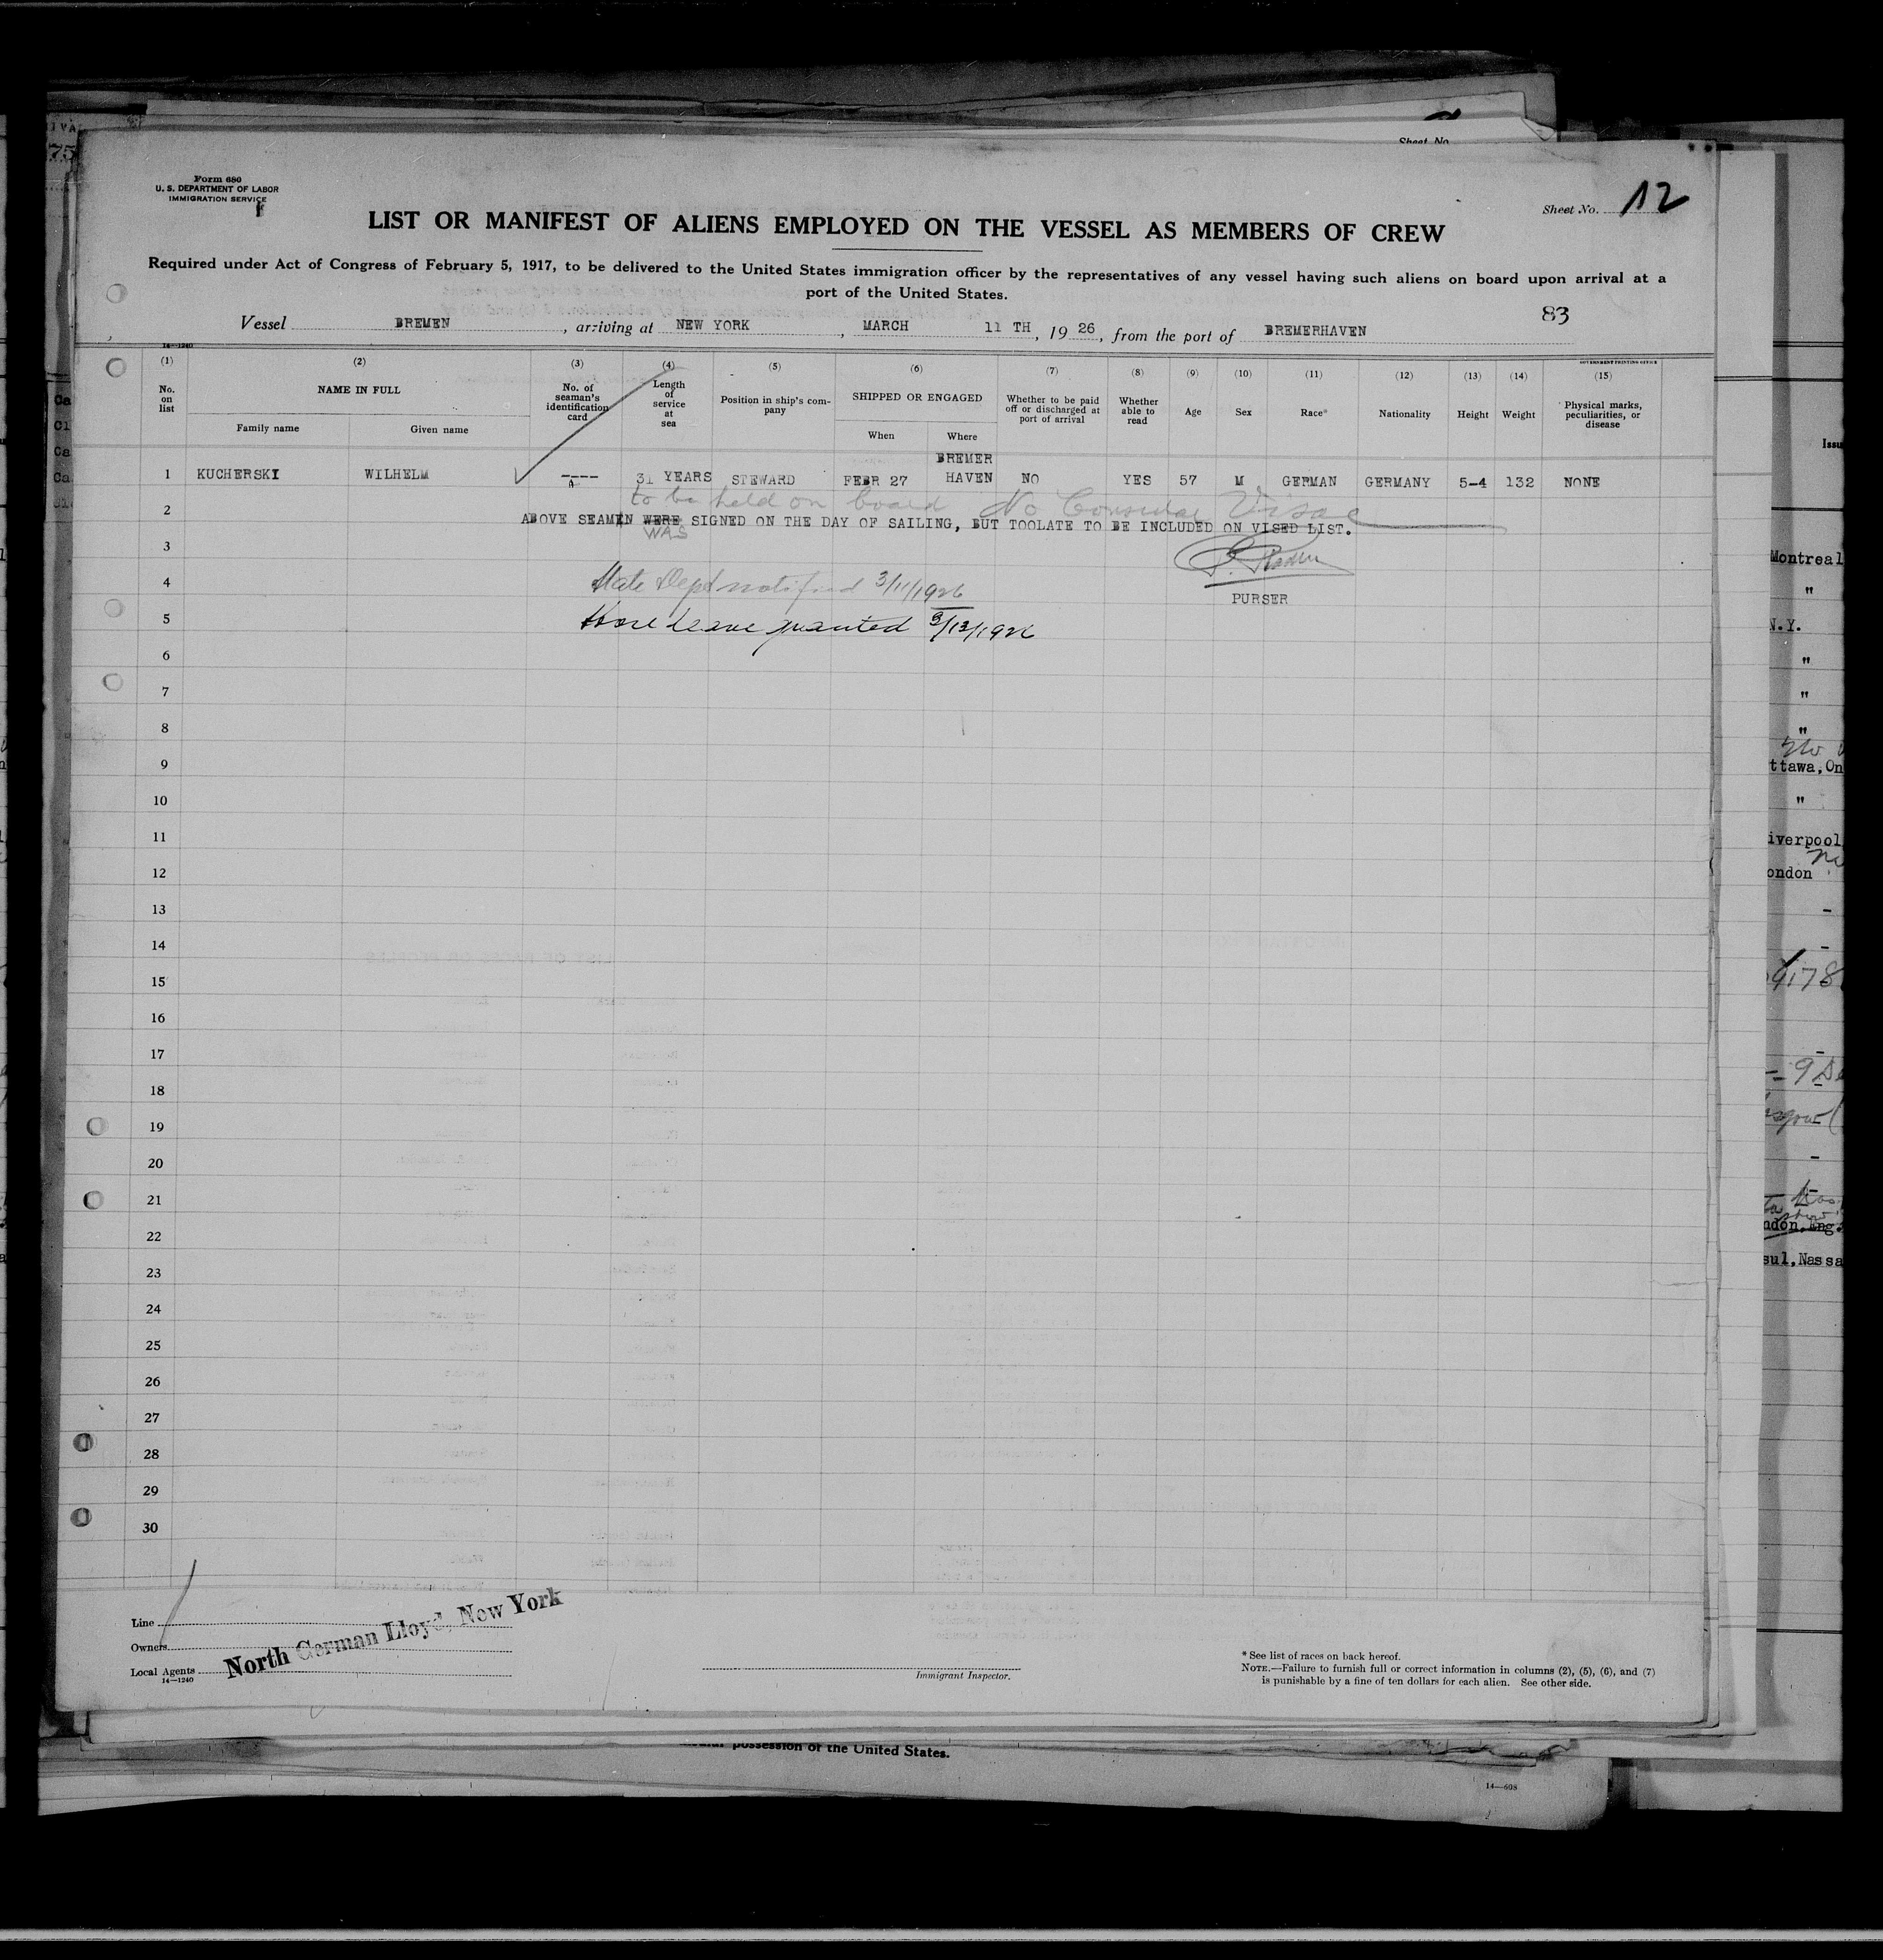 Sheet No.
Form 680
U. S. DEPARTMENT OF LABOR
IMMIGRATION SERVICE
Sheet No. 12
LIST OR MANIFEST OF ALIENS EMPLOYED ON THE VESSEL AS MEMBERS OF CREW
Required under Act of Congress of February 5, 1917, to be delivered to the United States immigration officer by the representatives of any vessel having such aliens on board upon arrival at a
port of the United States.
83
Vessel BREMEN, arriving at NEW YORK, MARCH 11 TH, 1926, from the port of BREMERHAVEN
14—1240
GOVERNMENT PRINTING OFFICE
(1) (2) (3) (4) (5) (6) (7) (8) (9) (10) (11) (12) (13) (14) (15)
No. on list
NAME IN FULL
Family name Given name
No. of seaman's identification card
Length of service at sea
Position in ship's company
SHIPPED OR ENGAGED
When Where
Whether to be paid off or discharged at port of arrival
Whether able to read
Age
Sex
Race*
Nationality
Height
Weight
Physical marks, peculiarities, or disease
1 KUCHERSKI WILHELM ---- 31 YEARS STEWARD FEBR 27 BREMER HAVEN NO YES 57 M GERMAN GERMANY 5-4 132 NONE
to be held on board No Consular Visae
2
ABOVE SEAMEN WERE SIGNED ON THE DAY OF SAILING, BUT TOOLATE TO BE INCLUDED ON VISED LIST.
WAS
3
4 State Dept notified 3/11/1926
PURSER
5 Shore leave granted 3/13/1926
6
7
8
9
10
11
12
13
14
15
16
17
18
19
20
21
22
23
24
25
26
27
28
29
30
Line
Owners
Local Agents
North German Lloyd, New York
14—1240
Immigrant Inspector.
* See list of races on back hereof.
NOTE.—Failure to furnish full or correct information in columns (2), (5), (6), and (7)
is punishable by a fine of ten dollars for each alien. See other side.
possession of the United States.
14—608
Montreal
"
N.Y.
"
"
"
ttawa, On
"
iverpool
ondon
ndon, Eng.
sul, Nassa